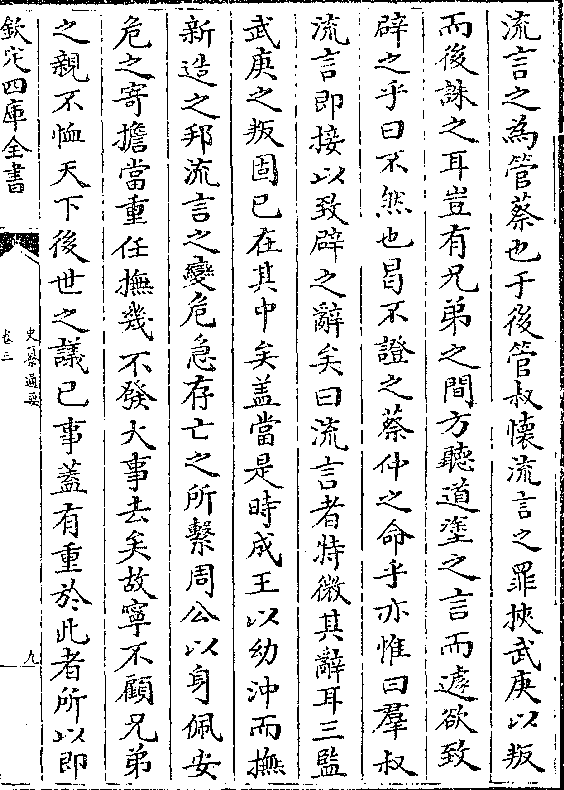 流言之為管蔡也于後管叔懷流言之罪挾武庚以叛
而後誅之耳豈有兄弟之間方聽道塗之言而遽欲致
辟之乎曰不然也曷不證之蔡仲之命乎亦惟曰羣叔
流言即接以致辟之辭矣曰流言者特微其辭耳三監
武庚之叛固已在其中矣盖當是時成王以幼沖而撫
新造之邦流言之變危急存亡之所繫周公以身佩安
危之寄擔當重任撫幾不發大事去矣故寧不顧兄弟
之親不恤天下後世之議已事蓋有重於此者所以即
欽定四庫全書
史纂通要
卷三
九